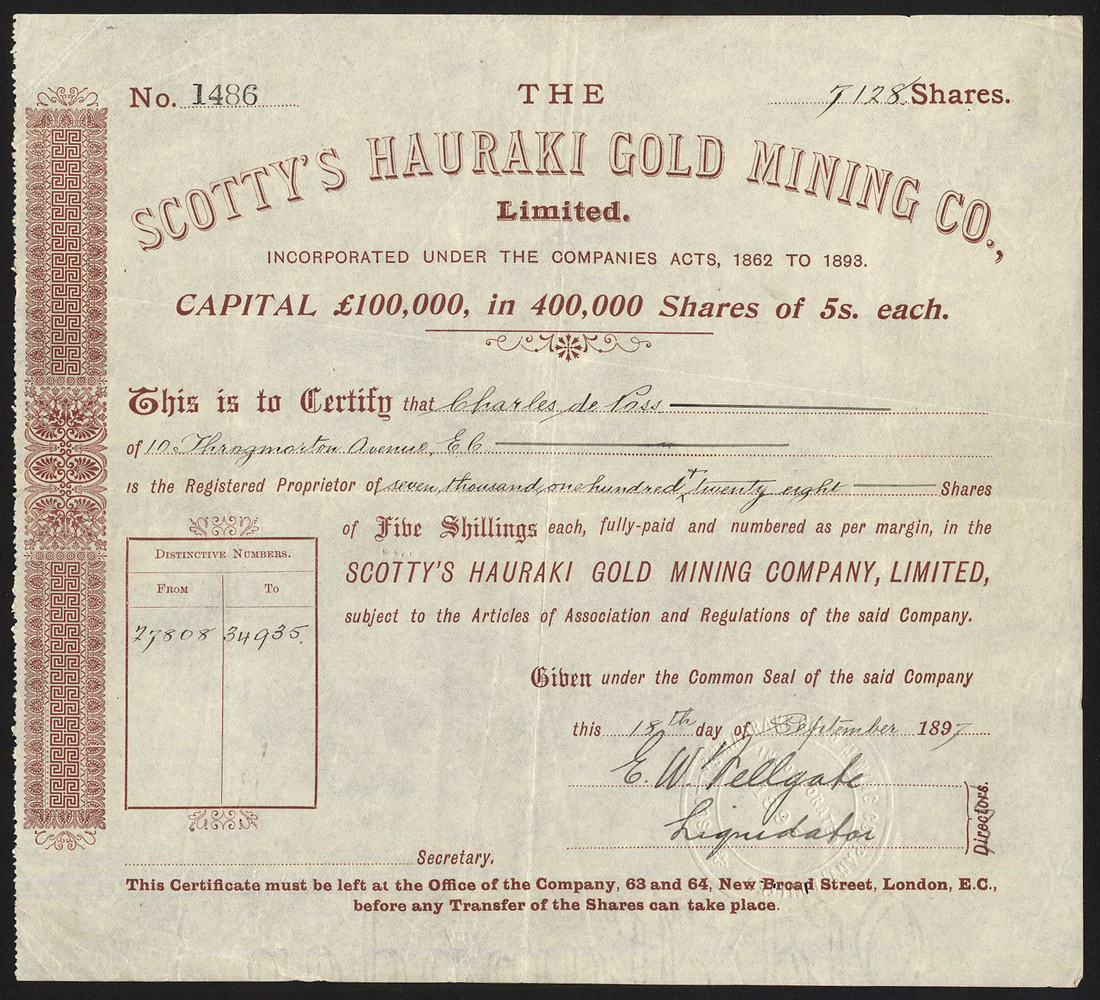 No. 1486 THE 7128 Shares.
SCOTTY'S HAURAKI GOLD MINING CO.,
Limited.
INCORPORATED UNDER THE COMPANIES ACTS, 1862 TO 1893.
CAPITAL £100,000, in 400,000 Shares of 5s. each.
This is to Certify that Charles de Pass
of 10 Throgmorton Avenue, E.C
is the Registered Proprietor of seven thousand one hundred + twenty eight Shares
of Five Shillings each, fully-paid and numbered as per margin, in the
SCOTTY'S HAURAKI GOLD MINING COMPANY, LIMITED,
subject to the Articles of Association and Regulations of the said Company.
DISTINCTIVE NUMBERS.
FROM TO
27808 34935.
Given under the Common Seal of the said Company
this 18th day of September 1897
E. W.
Liquidator
Directors.
Secretary.
This Certificate must be left at the Office of the Company, 63 and 64, New Broad Street, London, E.C.,
before any Transfer of the Shares can take place.